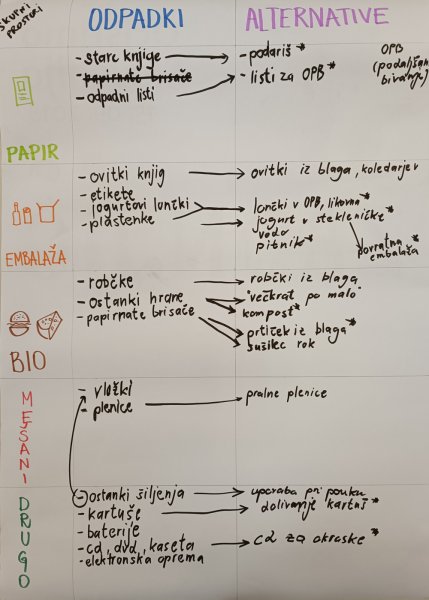 SKUPNI PROSTORI
ODPADKI
ALTERNATIVE
PAPIR
- stare knjige
- papirnate brisače
- odpadni listi
- podariš *
- listi za OPB *
OPB
(podaljšano
bivanje)
EMBALAŽA
- ovitki knjig
- etikete
- jogurtovi lončki
- plastenke
ovitki iz blaga, koledarjev
lončki v OPB, likovna *
jogurt v stekleničke *
voda
pitnik *
povratna
embalaža *
BIO
- robčke
- ostanki hrane
- papirnate brisače
robčki iz blaga
"večkrat po malo"
kompost *
prtiček iz blaga *
sušilec rok
MEŠANI
- vložki
- plenice
pralne plenice
DRUGO
- ostanki šiljenja
- kartuše
- baterije
- cd, dvd, kaseta
- elektronska oprema
uporaba pri pouku
dolivanje kartuš *
cd za okraske *